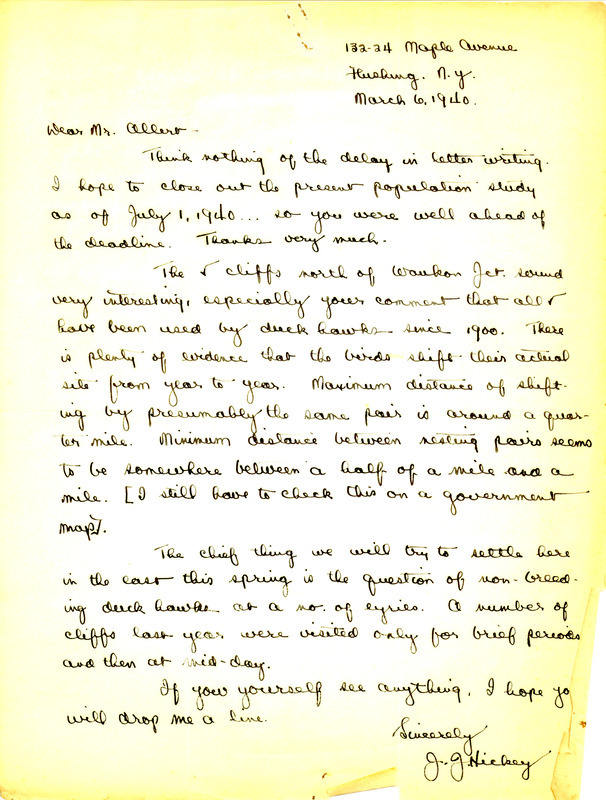 132-24 Maple Avenue
Flushing, N.Y.
March 6, 1940.
Dear Mr. Allert -
Think nothing of the delay in letter writing.
I hope to close out the present population study
as of July 1, 1940... so you were well ahead of
the deadline. Thanks very much.
The cliffs north of Waukon Jct. sound
very interesting, especially your comment that all
have been used by duck hawks since 1900. There
is plenty of evidence that the birds shift their actual
site from year to year. Maximum distance of shift-
ing by presumably the same pair is around a quar-
ter mile. Minimum distance between nesting pairs seems
to be somewhere between a half of a mile and a
mile. [I still have to check this on a government
map].
The chief thing we will try to settle here
in the east this spring is the question of non-breed-
ing duck hawks at a no. of eyries. A number of
cliffs last year were visited only for brief periods
and then at mid-day.
If you yourself see anything, I hope yo
will drop me a line.
Sincerely
J. J. Hickey